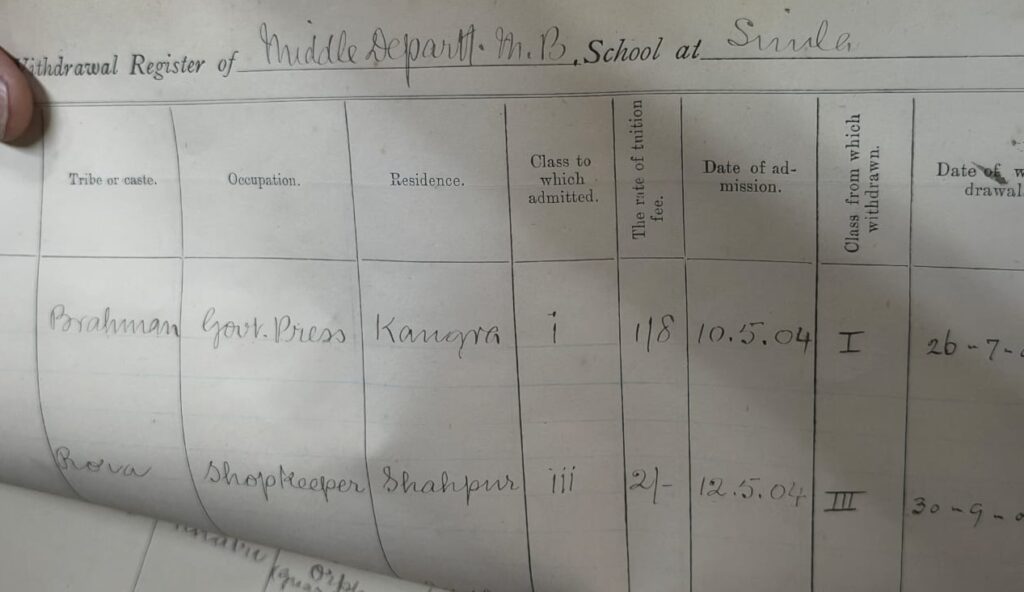 Withdrawal Register of Middle Departt. M.B. School at Simla
Tribe or caste. Occupation. Residence. Class to which admitted. The rate of tuition fee. Date of ad-mission. Class from which withdrawn. Date of w drawal
Brahman Govt. Press Kangra i 1/8 10.5.04 I 26-7-0
Shopkeeper Shahpur iii 2/- 12.5.04 III 30-9-0